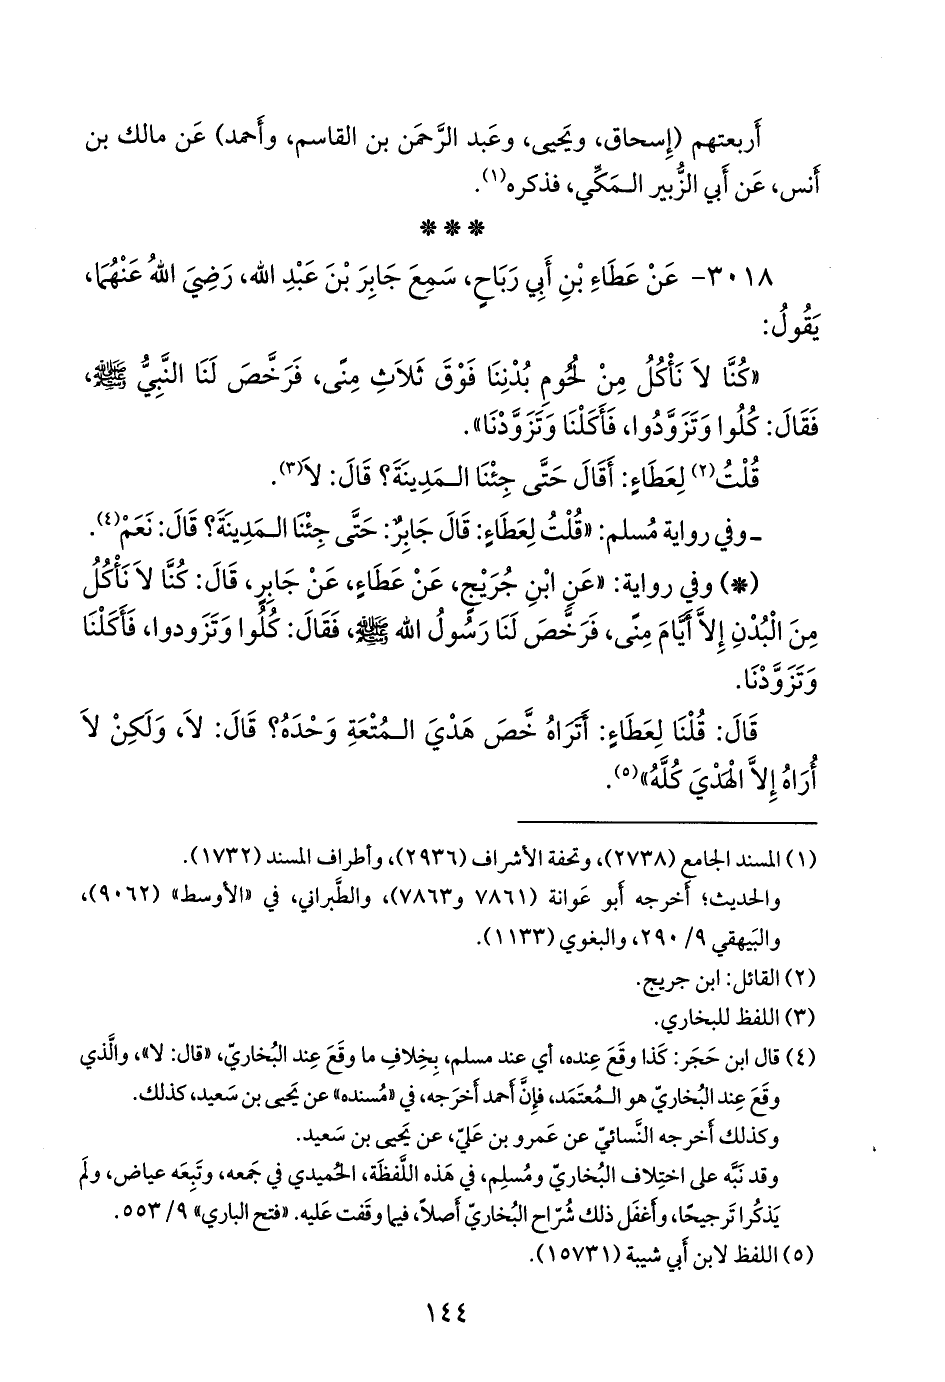 أَربعتهم (إِسحاق، ويَحيى، وعَبد الرَّحمَن بن القاسم، وأَحمد) عَن مالك بن
أَنس، عَن أَبي الزُّبير الـمَكِّي، فذكره(١).
* * *
٣٠١٨- عَنْ عَطَاءِ بْنِ أَبِي رَبَاحٍ، سَمِعَ جَابِرَ بْنَ عَبْدِ الله، رَضِيَ اللهُ عَنْهُمَا،
يَقُولُ:
«كُنَّا لاَ نَأْكُلُ مِنْ لُحُومِ بُدْنِنَا فَوْقَ ثَلاَثِ مِنًى، فَرَخَّصَ لَنَا النَّبِيُّ ﷺ،
فَقَالَ: كُلُوا وَتَزَوَّدُوا، فَأَكَلْنَا وَتَزَوَّدْنَا».
قُلْتُ(٢) لِعَطَاءٍ: أَقَالَ حَتَّى جِئْنَا الـمَدِينَةَ؟ قَالَ: لاَ(٣).
ـ وفي رواية مُسلم: «قُلْتُ لِعَطَاءٍ: قَالَ جَابِرٌ: حَتَّى جِئْنَا الـمَدِينَةَ؟ قَالَ: نَعَمْ(٤).
(*) وفي رواية: «عَنِ ابْنِ جُرَيْجٍ، عَنْ عَطَاءٍ، عَنْ جَابِرٍ، قَالَ: كُنَّا لاَ نَأْكُلُ
مِنَ الْبُدْنِ إِلاَّ أَيَّامَ مِنًى، فَرَخَّصَ لَنَا رَسُولُ الله ﷺ، فَقَالَ: كُلُوا وَتَزَودوا، فَأَكَلْنَا
وَتَزَوَّدْنَا.
قَالَ: قُلْنَا لِعَطَاءٍ: أَتَرَاهُ خَصَّ هَدْيَ الـمُتْعَةِ وَحْدَهُ؟ قَالَ: لاَ، وَلَكِنْ لاَ
أُرَاهُ إِلاَّ الْهَدْيَ كُلَّهُ»(٥).
(١) المسند الجامع (٢٧٣٨)، وتحفة الأشراف (٢٩٣٦)، وأطراف المسند (١٧٣٢).
والحديث؛ أَخرجه أَبو عَوانة (٧٨٦١ و٧٨٦٣)، والطَّبراني، في «الأَوسط» (٩٠٦٢)،
والبَيهقي ٩/ ٢٩٠، والبغوي (١١٣٣).
(٢) القائل: ابن جريج.
(٣) اللفظ للبخاري.
(٤) قال ابن حَجَر: كَذا وقَعَ عِنده، أي عند مسلم، بِخِلافِ ما وقَعَ عِند البُخاريّ، «قال: لا»، والَّذي
وقَعَ عِند البُخاريّ هو الـمُعتَمَد، فإِنَّ أحمد أَخرَجه، في «مُسنده» عن يَحيى بن سَعيد، كذلك.
وكذلك أَخرجه النَّسائيّ عن عَمرو بن عَليّ، عن يَحيى بن سَعيد.
وقد نَبَّه على اختِلاف البُخاريّ ومُسلِم، في هَذه اللَّفظَة، الحُميدي في جَمعه، وتَبِعَه عياض، ولَم
يَذكُرا تَرجيحًا، وأَغفَل ذلك شُرّاح البُخاريّ أَصلاً، فيما وقَفت عَليه. «فتح الباري» ٩/ ٥٥٣.
(٥) اللفظ لابن أَبي شيبة (١٥٧٣١).
١٤٤